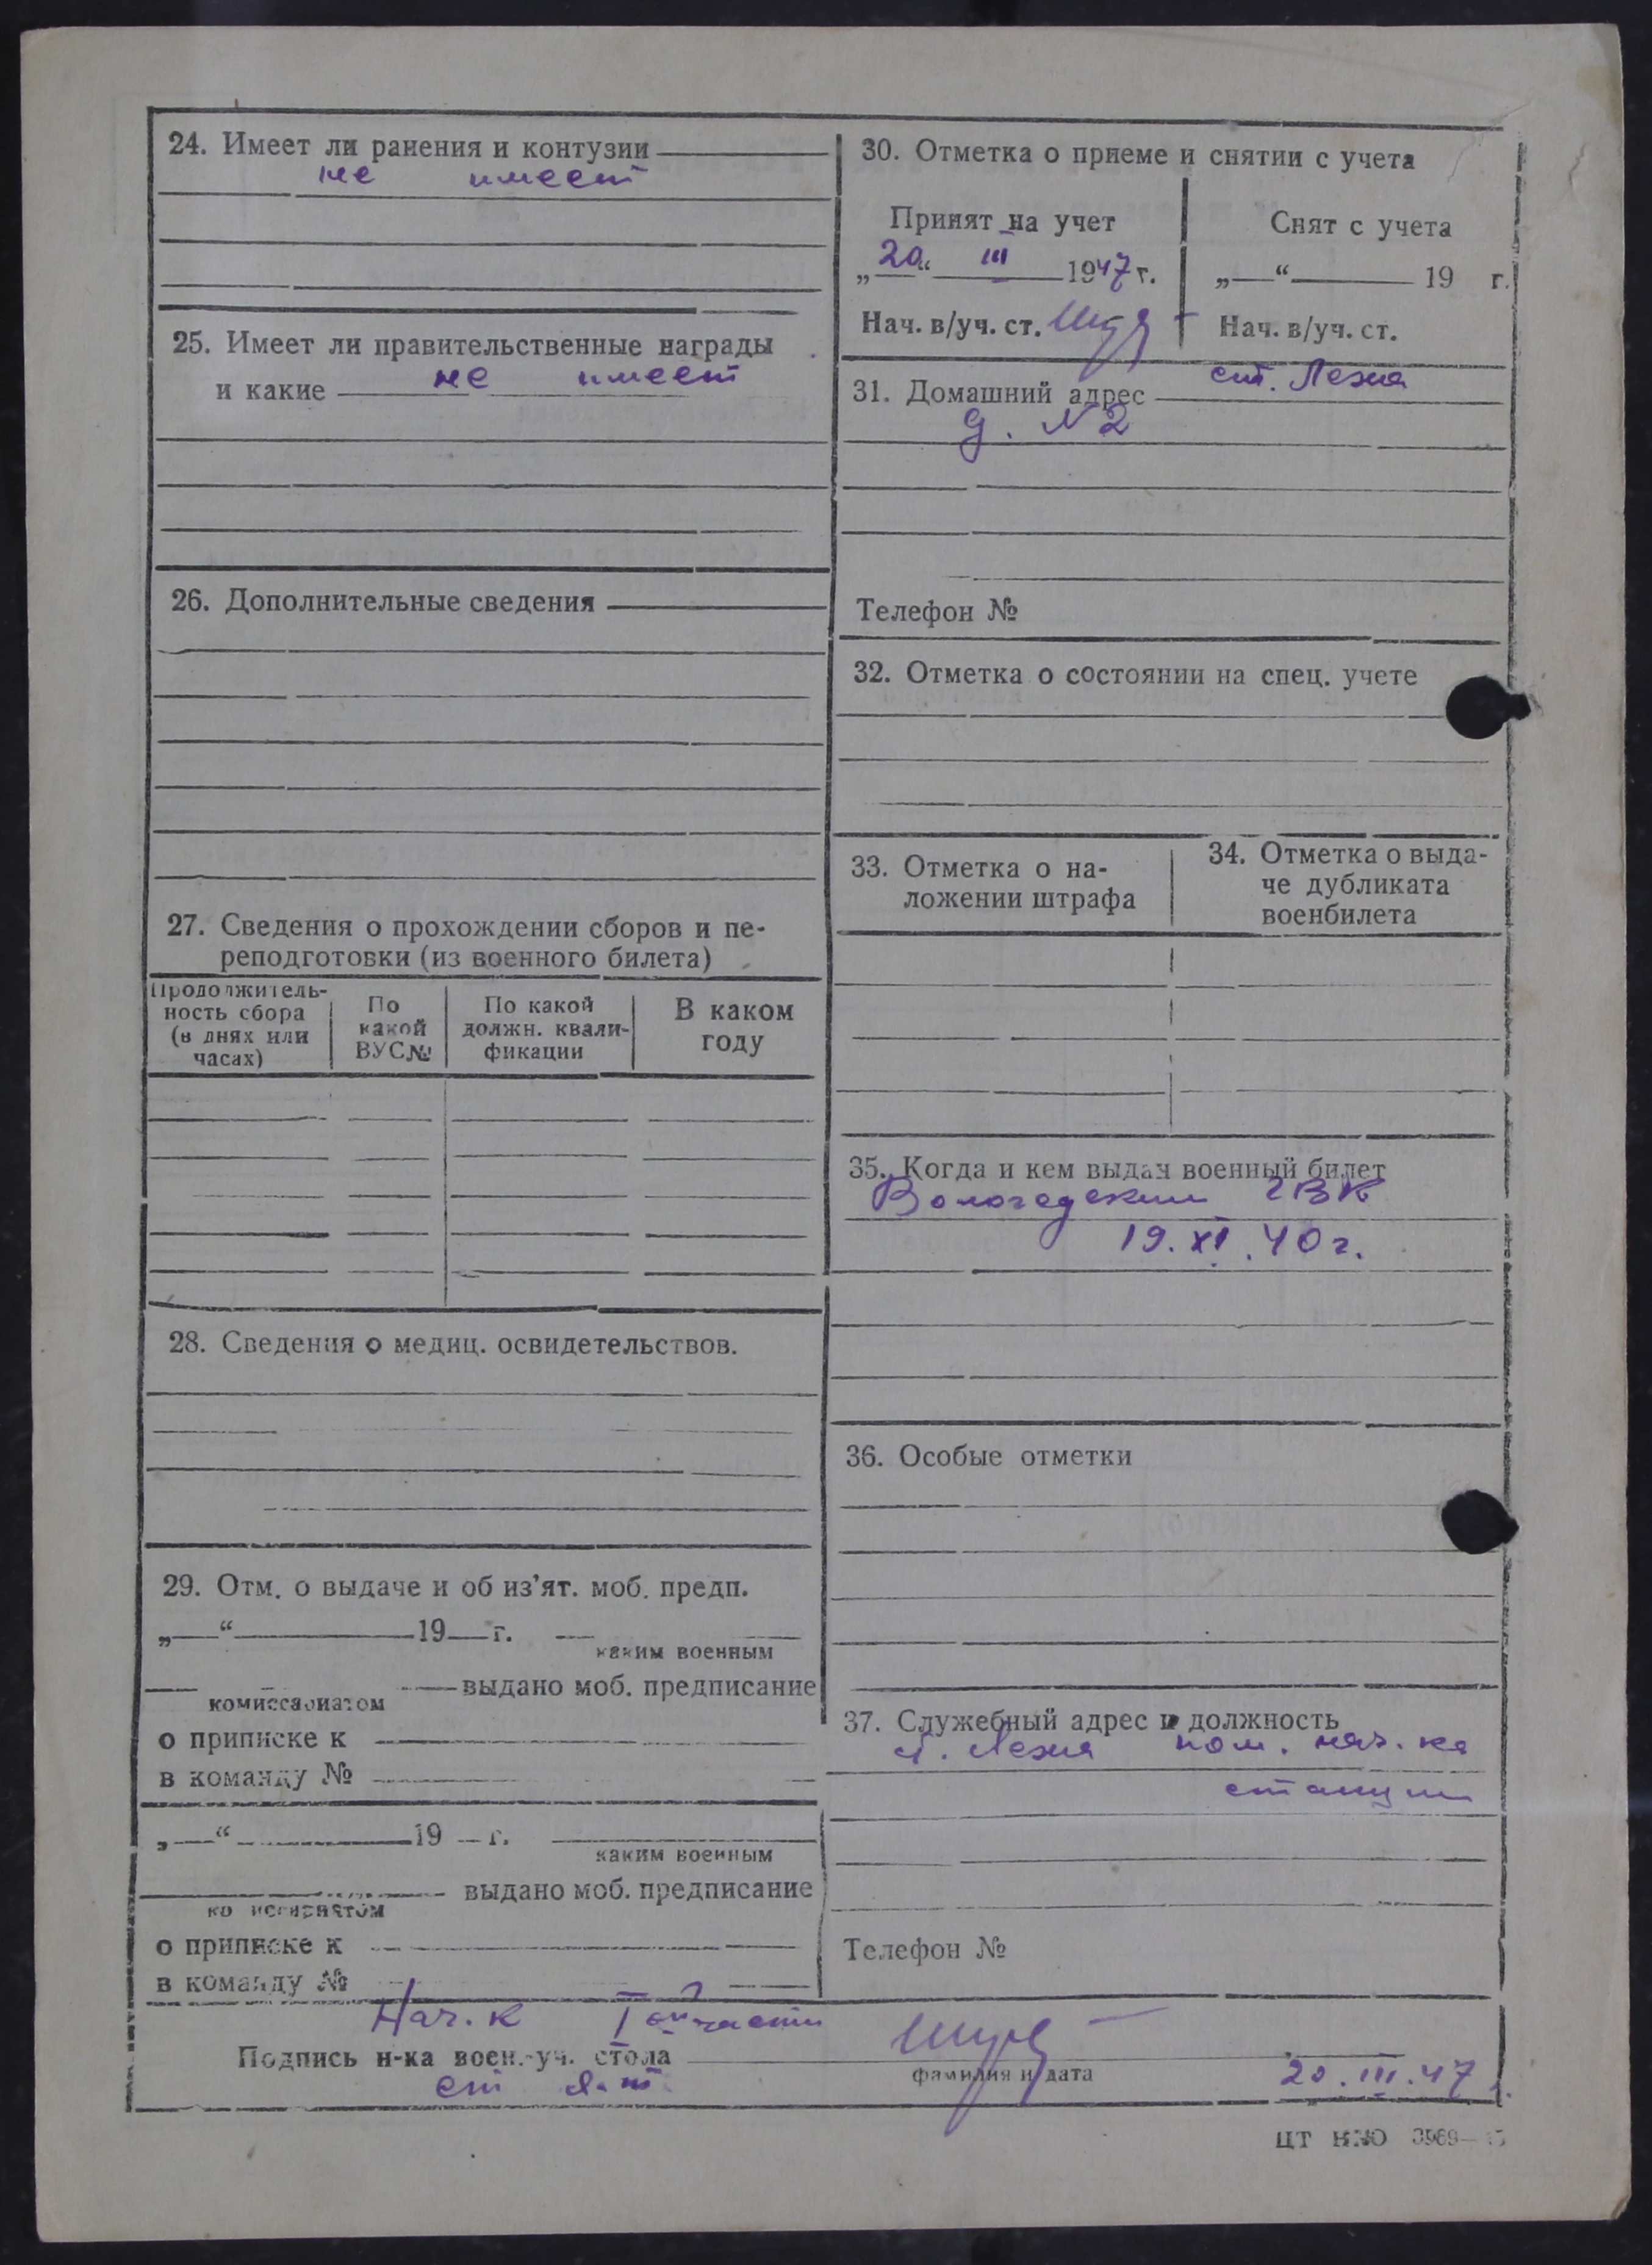 24. Имеет ли ранения и контузии
не имеет
25. Имеет ли правительственные награды
и какие не имеет
26. Дополнительные сведения
27. Сведения о прохождении сборов и пе-
реподготовки (из военного билета)
Продолжитель-
ность сбора
(в днях или
часах)
По
какой
ВУС№
По какой
должн. квали-
фикации
В каком
году
28. Сведения о медиц. освидетельствов.
29. Отм. о выдаче и об из’ят. моб. предп.
„ “ 19 г.
каким военным
выдано моб. предписание
комиссариатом
о приписке к
в команду №
„ “ 19 г.
каким военным
выдано моб. предписание
комиссариатом
о приписке к
в команду №
30. Отметка о приеме и снятии с учета
Принят на учет
„20“ III 1947 г.
Нач. в/уч. ст.
Снят с учета
„ “ 19 г.
Нач. в/уч. ст.
31. Домашний адрес ст. Лежа
д. N2
Телефон №
32. Отметка о состоянии на спец. учете
33. Отметка о на-
ложении штрафа
34. Отметка о выда-
че дубликата
военбилета
35. Когда и кем выдан военный билет
Вологодским ГВК
19.XI.40 г.
36. Особые отметки
37. Служебный адрес и должность
ст. Лежа пом. нач.ка
станции
Телефон №
Нач.к части
Подпись н-ка воен.-уч. стола
ст л-т
фамилия и дата
20.III.47
ЦТ НКО 3969—